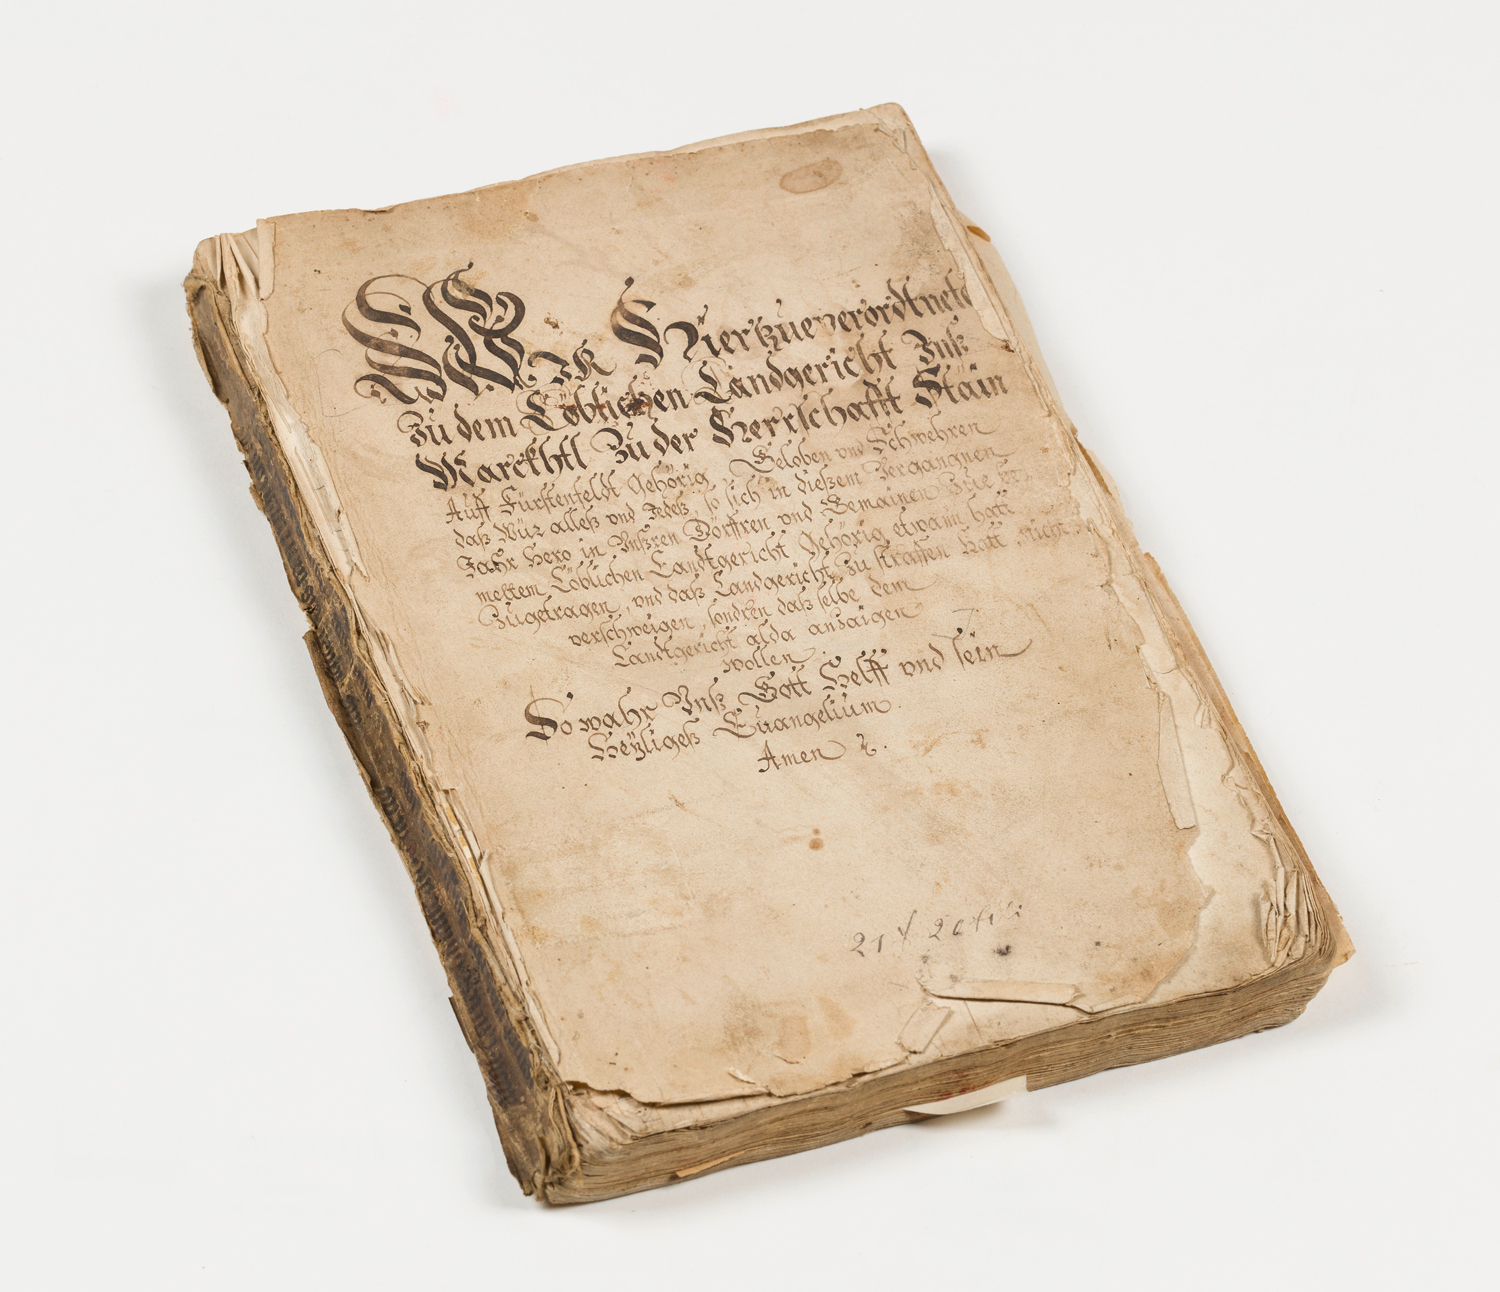 WIR Hierzue verordtnete
Zu dem Löblichen Landgericht Inß
Marckhtl Zu der Herrschafft Stain
Auff Fürstenfeldt Gehörig Geloben vnd Schwehren
daß Wür alleß vnd Jedeß, so sich in dießem Vergangnen
Jahr hero in Vnßren Dörffren vnd Gemainen
meltem Löblichen Landtgericht Gehörig etwain hatt
Zugetragen, vnd daß Landgericht Zu straffen hatt nicht
verschweigen, sondren daß selbe dem
Landtgericht alda anzaigen
wollen
So wahr Vnß Gott Helff vnd sein
Heyligeß Euangelium.
Amen